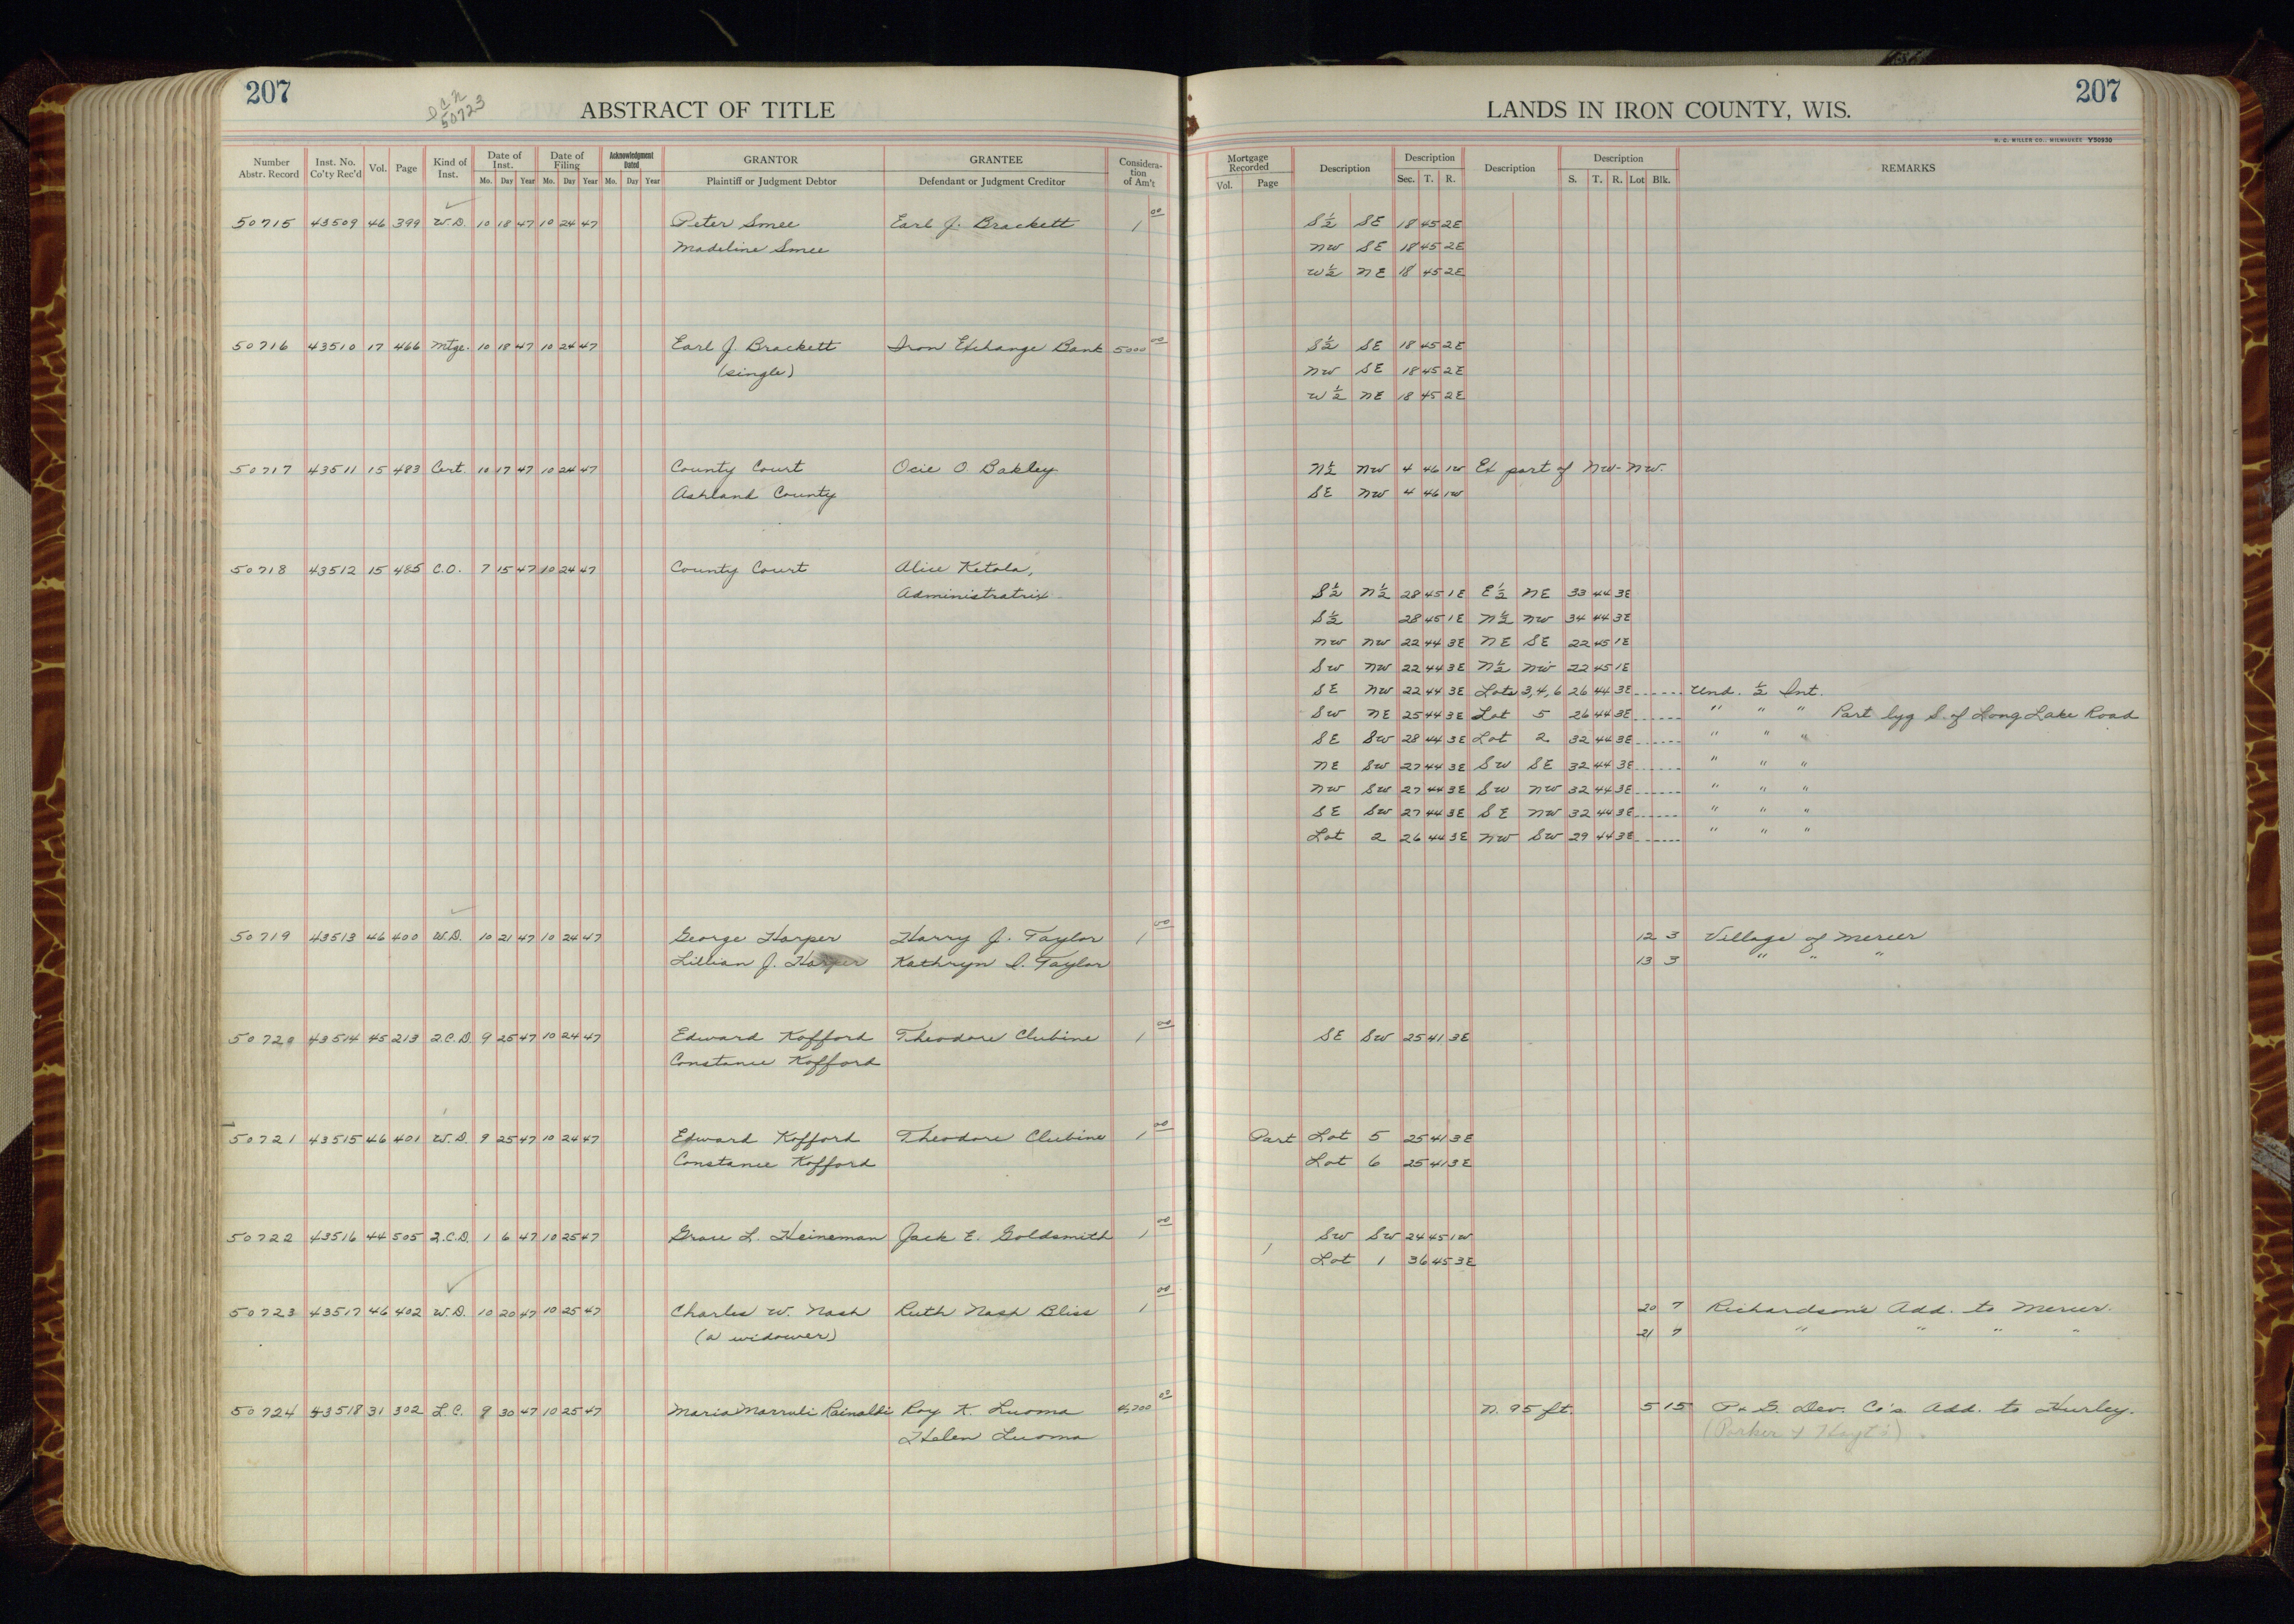 207
D C N
50723
ABSTRACT OF TITLE
Number Abstr. Record Inst. No. Co'ty Rec'd Vol. Page Kind of Inst. Date of Inst. Mo. Day Year Date of Filing Mo. Day Year Acknowledgment Dated Mo. Day Year GRANTOR Plaintiff or Judgment Debtor GRANTEE Defendant or Judgment Creditor Considera-tion of Am't
50715 43509 46 399 W.D. 10 18 47 10 24 47 Peter Smee Earl J. Brackett 1 00
Madeline Smee
50716 43510 17 466 Mtge. 10 18 47 10 24 47 Earl J. Brackett Iron Exchange Bank 5000 00
(single)
50717 43511 15 483 Cert. 10 17 47 10 24 47 County Court Ocie O Bakley
Ashland County
50718 43512 15 485 C.O. 7 15 47 10 24 47 County Court Alice Ketola,
Administratrix
50719 43513 46 400 W.D. 10 21 47 10 24 47 George Harper Harry J. Taylor 1 00
Lillian J. Harper Kathryn I. Taylor
50720 43514 45 213 Q.C.D. 9 25 47 10 24 47 Edward Kofford Theodore Clubine 1 00
Constance Kofford
50721 43515 46 401 W.D. 9 25 47 10 24 47 Edward Kofford Theodore Clubine 1 00
Constance Kofford
50722 43516 44 505 Q.C.D. 1 6 47 10 25 47 Grace L. Heineman Jack E. Goldsmith 1 00
50723 43517 46 402 W.D. 10 20 47 10 25 47 Charles W. Nash Ruth Nash Bliss 1 00
(a widower)
50724 43518 31 302 L.C. 9 30 47 10 25 47 Maria Marruli Rainaldi Roy K. Luoma 4,700 00
Helen Luoma
LANDS IN IRON COUNTY, WIS.
207
H. C. MILLER CO., MILWAUKEE Y50930
Mortgage Recorded Vol. Page Description Description Sec. T. R. Description Description S. T. R. Lot Blk. REMARKS
S½ SE 18 45 2E
NW SE 18 45 2E
W½ NE 18 45 2E
S½ SE 18 45 2E
NW SE 18 45 2E
W½ NE 18 45 2E
N½ NW 4 46 1W Ex part of NW-NW.
SE NW 4 46 1W
S½ N½ 28 45 1E E½ NE 33 44 3E
S½ 28 45 1E N½ NW 34 44 3E
NW NW 22 44 3E NE SE 22 45 1E
SW NW 22 44 3E N½ NW 22 45 1E
SE NW 22 44 3E Lots 3,4,6 26 44 3E Und. ½ Int.
SW NE 25 44 3E Lot 5 26 44 3E " " " Part lyg S. of Long Lake Road
SE SW 28 44 3E Lot 2 32 44 3E " " "
NE SW 27 44 3E SW SE 32 44 3E " " "
NW SW 27 44 3E SW NW 32 44 3E " " "
SE SW 27 44 3E SE NW 32 44 3E " " "
Lot 2 26 44 3E NW SW 29 44 3E " " "
12 3 Village of Mercer
13 3 " " "
SE SW 25 41 3E
Part Lot 5 25 41 3E
Lot 6 25 41 3E
SW SW 24 45 1W
Lot 1 36 45 3E
20 7 Richardson's Add. to Mercer.
21 7 " " " "
N. 95 ft. 5 15 P. & G. Dev. Co's Add. to Hurley.
(Parker & Hoyt's)